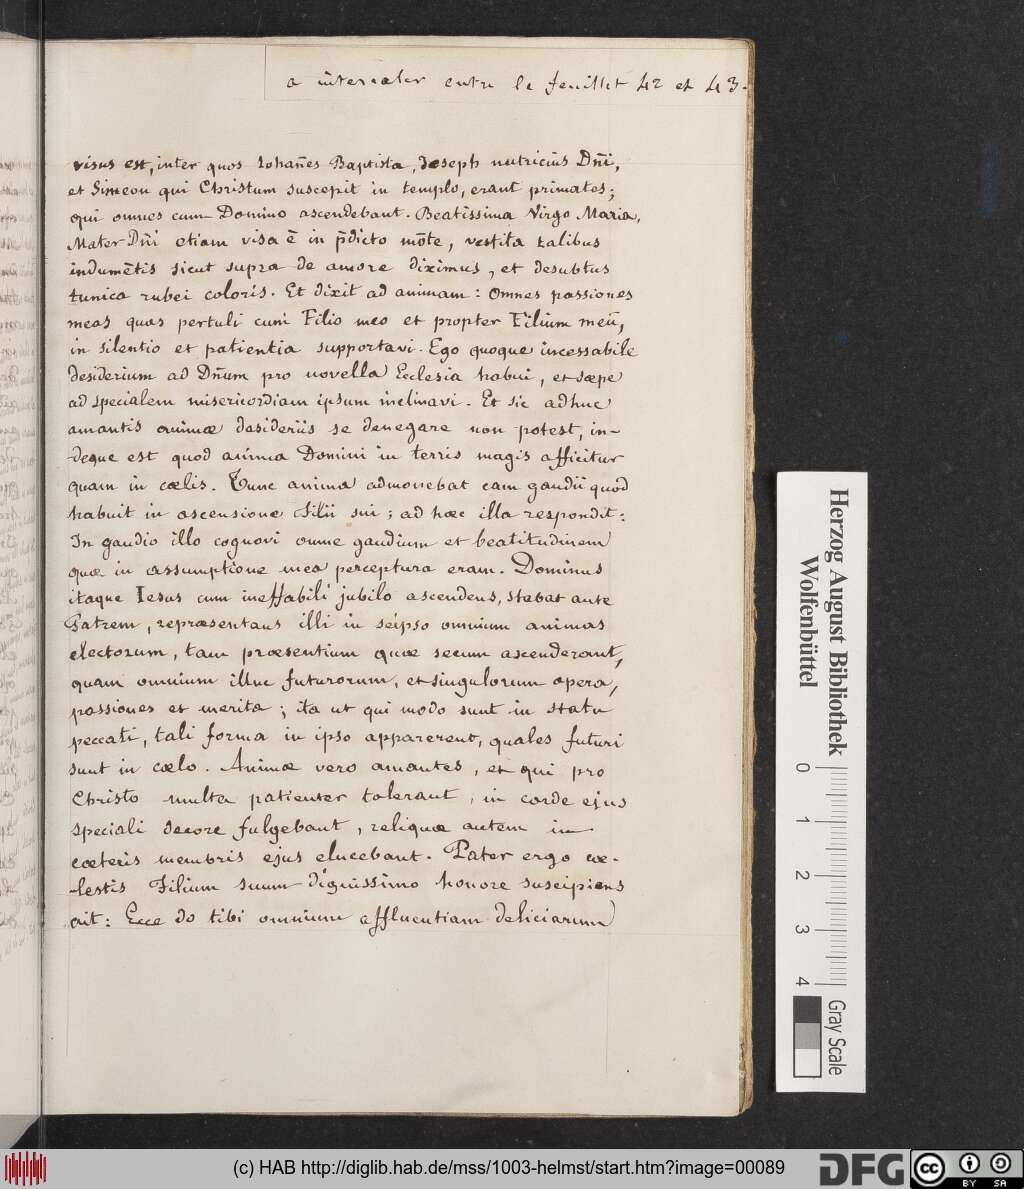 a intercaler entre le feuillet 42 et 43.
visus est, inter quos Iohan̄es Baptista, Joseph nutricius Dn̄i,
et Simeon qui Christum suscepit in templo, erant primates;
qui omnes cum Domino ascendebant. Beatissima Virgo Maria,
Mater Dn̄i etiam visa ē in p̄dicto mōte, vestita talibus
indumētis sicut supra de amore diximus, et desubtus
tunica rubei coloris. Et dixit ad animam: Omnes passiones
meas quas pertuli cum Filio meo et propter Filium meū,
in silentio et patientia supportavi. Ego quoque incessabile
desiderium ad Dn̄um pro novella Ecclesia habui, et sæpe
ad specialem misericordiam ipsum inclinavi. Et sic adhuc
amantis animæ desideriis se denegare non potest, in-
deque est quod anima Domini in terris magis afficitur
quam in cœlis. Tunc anima admonebat eam gaudii quod
habuit in ascensione Filii sui; ad hæc illa respondit:
In gaudio illo cognovi omne gaudium et beatitudinem
quæ in assumptione mea perceptura eram. Dominus
itaque Iesus cum ineffabili jubilo ascendens, stabat ante
Patrem, repræsentans illi in seipso omnium animas
electorum, tam præsentium quæ secum ascenderant,
quam omnium illuc futurorum, et singulorum opera,
passiones et merita; ita ut qui modo sunt in statu
peccati, tali forma in ipso apparerent, quales futuri
sunt in cœlo. Animæ vero amantes, et qui pro
Christo multa patienter tolerant, in corde ejus
speciali decore fulgebant, reliquæ autem in
cæteris membris ejus elucebant. Pater ergo cæ-
lestis Filium suum dignissimo honore suscipiens
ait: Ecce do tibi omnium affluentiam deliciarum
Herzog August Bibliothek
Wolfenbüttel
0 1 2 3 4
Gray Scale
(c) HAB http://diglib.hab.de/mss/1003-helmst/start.htm?image=00089
DFG
cc BY SA